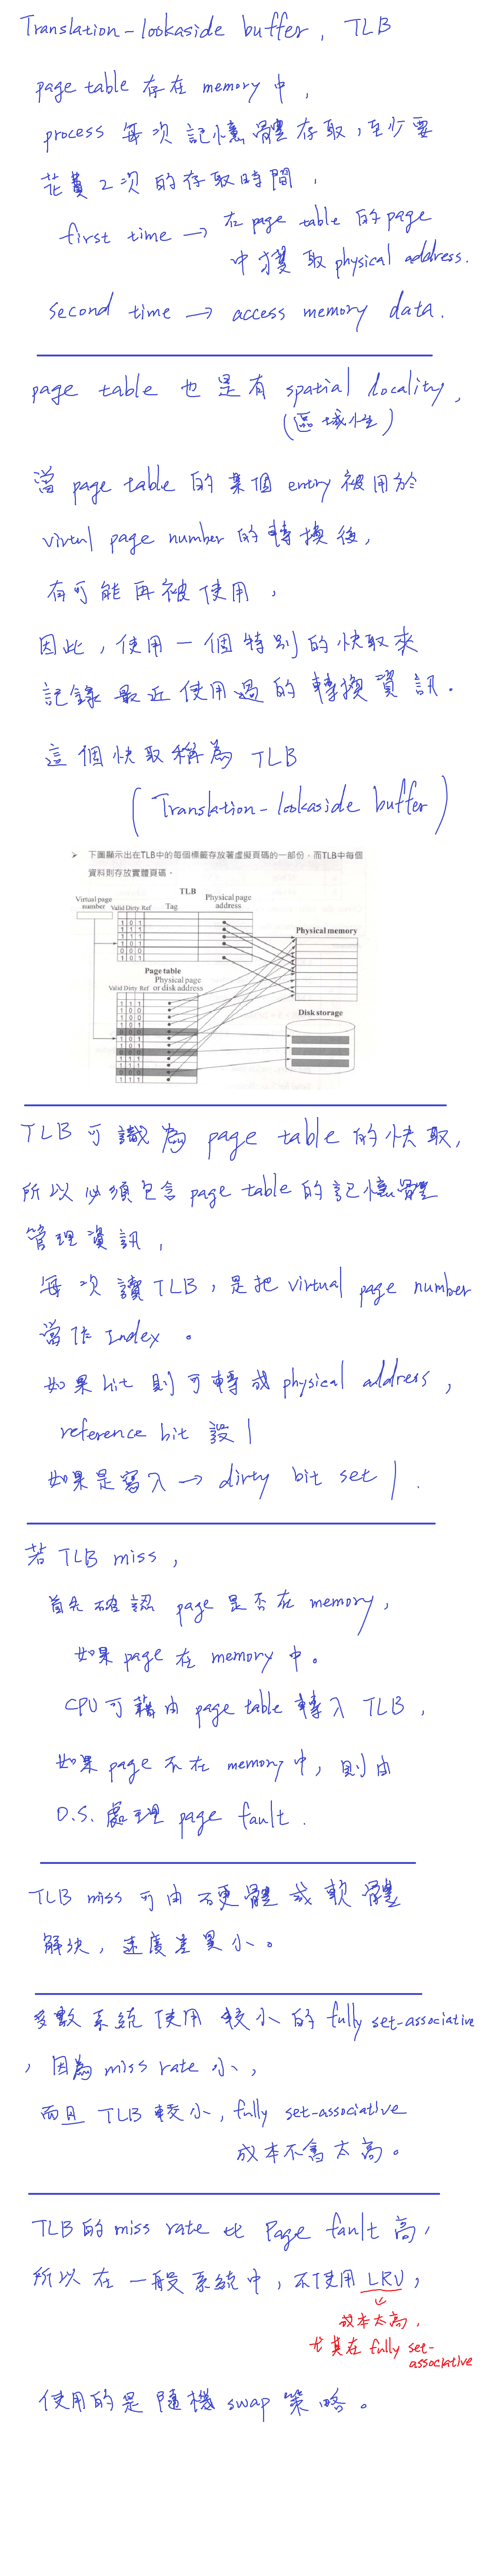 Translation-lookaside buffer, TLB
page table 存在 memory 中,
process 每次記憶體存取,至少要
花費2次的存取時間,
first time → 在 page table 的 page
中獲取 physical address.
second time → access memory data.
page table 也是有 spatial locality,
(區域性)
當 page table 的某個 entry 被用於
virtul page number 的轉換後,
有可能再被使用,
因此,使用一個特別的快取來
記錄最近使用過的轉換資訊.
這個快取稱為 TLB
(Translation-lookaside buffer)
➤ 下圖顯示出在TLB中的每個標籤存放著虛擬頁碼的一部份,而TLB中每個
資料則存放實體頁碼。
TLB
Virtual page
number
Valid Dirty Ref
Tag
Physical page
address
1 0 1
1 1 1
1 1 1
1 0 1
0 0 0
1 0 1
Physical memory
Page table
Physical page
Valid Dirty Ref or disk address
1 1 1
1 0 0
1 0 0
1 0 1
0 0 0
1 0 1
0 0 0
1 1 1
1 1 1
0 0 0
1 1 1
1 1 1
Disk storage
TLB 可識為 page table 的快取,
所以必須包含 page table 的記憶體
管理資訊,
每次讀TLB,是把 virtual page number
當作 Index 。
如果 hit 則可轉成 physical address,
reference bit 設1
如果是寫入 → dirty bit set 1.
若 TLB miss,
首先確認 page 是否在 memory,
如果 page 在 memory 中。
CPU 可藉由 page table 轉入 TLB,
如果 page 不在 memory 中,則由
O.S. 處理 page fault.
TLB miss 可由硬體或軟體
解決,速度差異小。
多數系統使用較小的 fully set-associative
,因為 miss rate 小,
而且 TLB 較小,fully set-associative
成本不會太高。
TLB的 miss rate 比 Page fault 高,
所以在一般系統中,不使用 LRU,
成本太高,
尤其在 fully set-
associative
使用的是隨機 swap 策略。